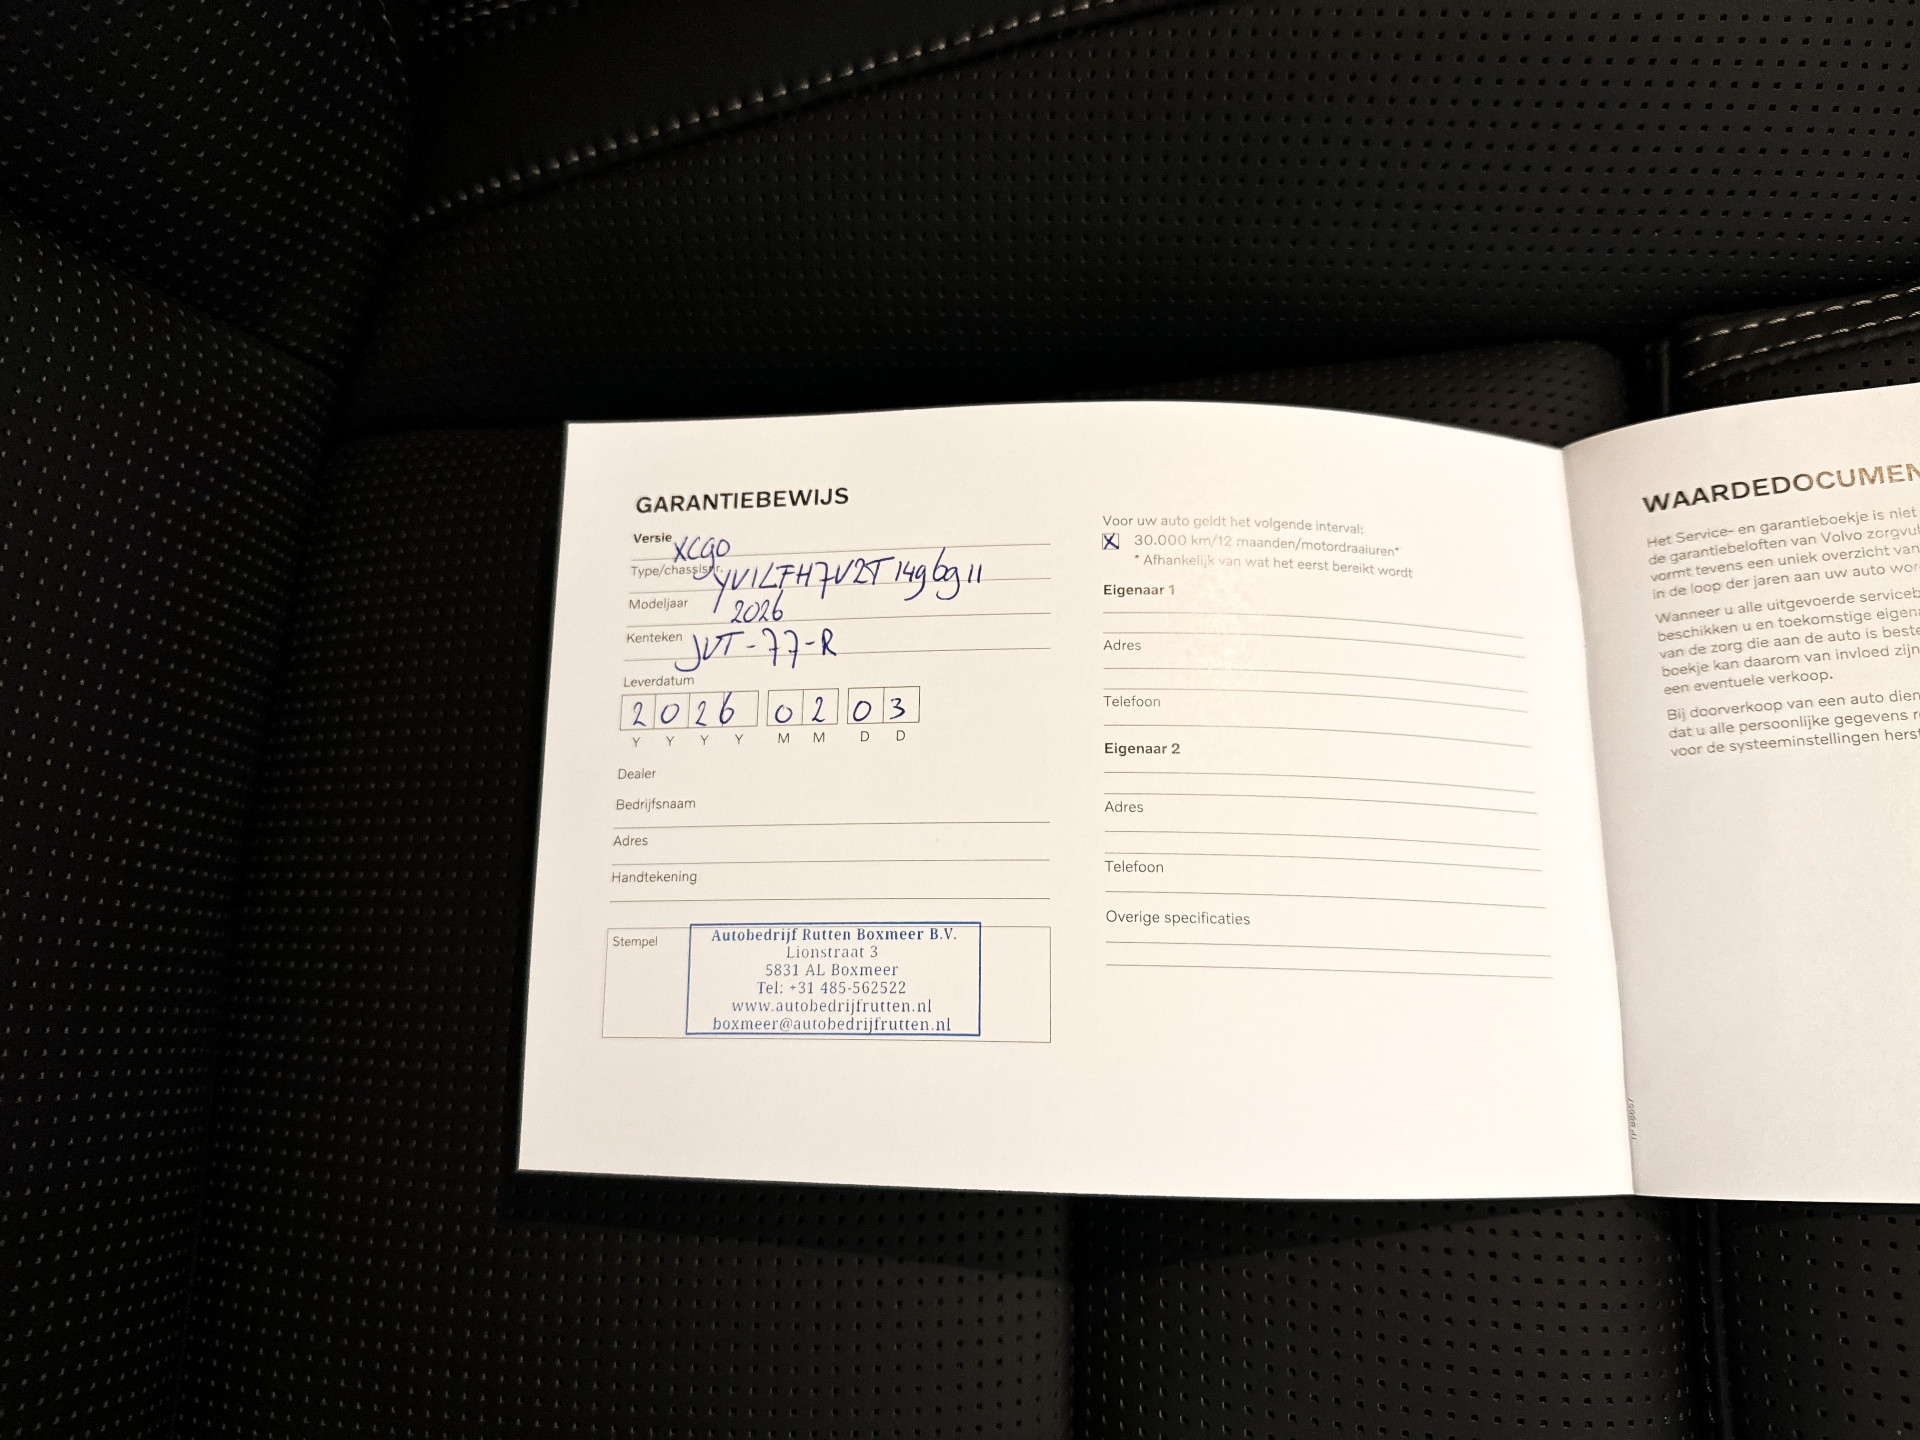 GARANTIEBEWIJS
Versie XC90
Type/chassisnr. YV1LFH7V2T1496911
Modeljaar 2026
Kenteken JVT-77-R
Leverdatum
2 0 2 6 0 2 0 3
Y Y Y Y M M D D
Dealer
Bedrijfsnaam
Adres
Handtekening
Stempel
Autobedrijf Rutten Boxmeer B.V.
Lionstraat 3
5831 AL Boxmeer
Tel: +31 485-562522
www.autobedrijfrutten.nl
boxmeer@autobedrijfrutten.nl
Voor uw auto geldt het volgende interval:
X 30.000 km/12 maanden/motordraaiuren*
* Afhankelijk van wat het eerst bereikt wordt
Eigenaar 1
Adres
Telefoon
Eigenaar 2
Adres
Telefoon
Overige specificaties
WAARDEDOCUMEN
Het Service- en garantieboekje is niet
de garantiebeloften van Volvo zorgvul
vormt tevens een uniek overzicht van
in de loop der jaren aan uw auto wor
Wanneer u alle uitgevoerde serviceb
beschikken u en toekomstige eigena
van de zorg die aan de auto is beste
boekje kan daarom van invloed zijn
een eventuele verkoop.
Bij doorverkoop van een auto dien
dat u alle persoonlijke gegevens r
voor de systeeminstellingen herst